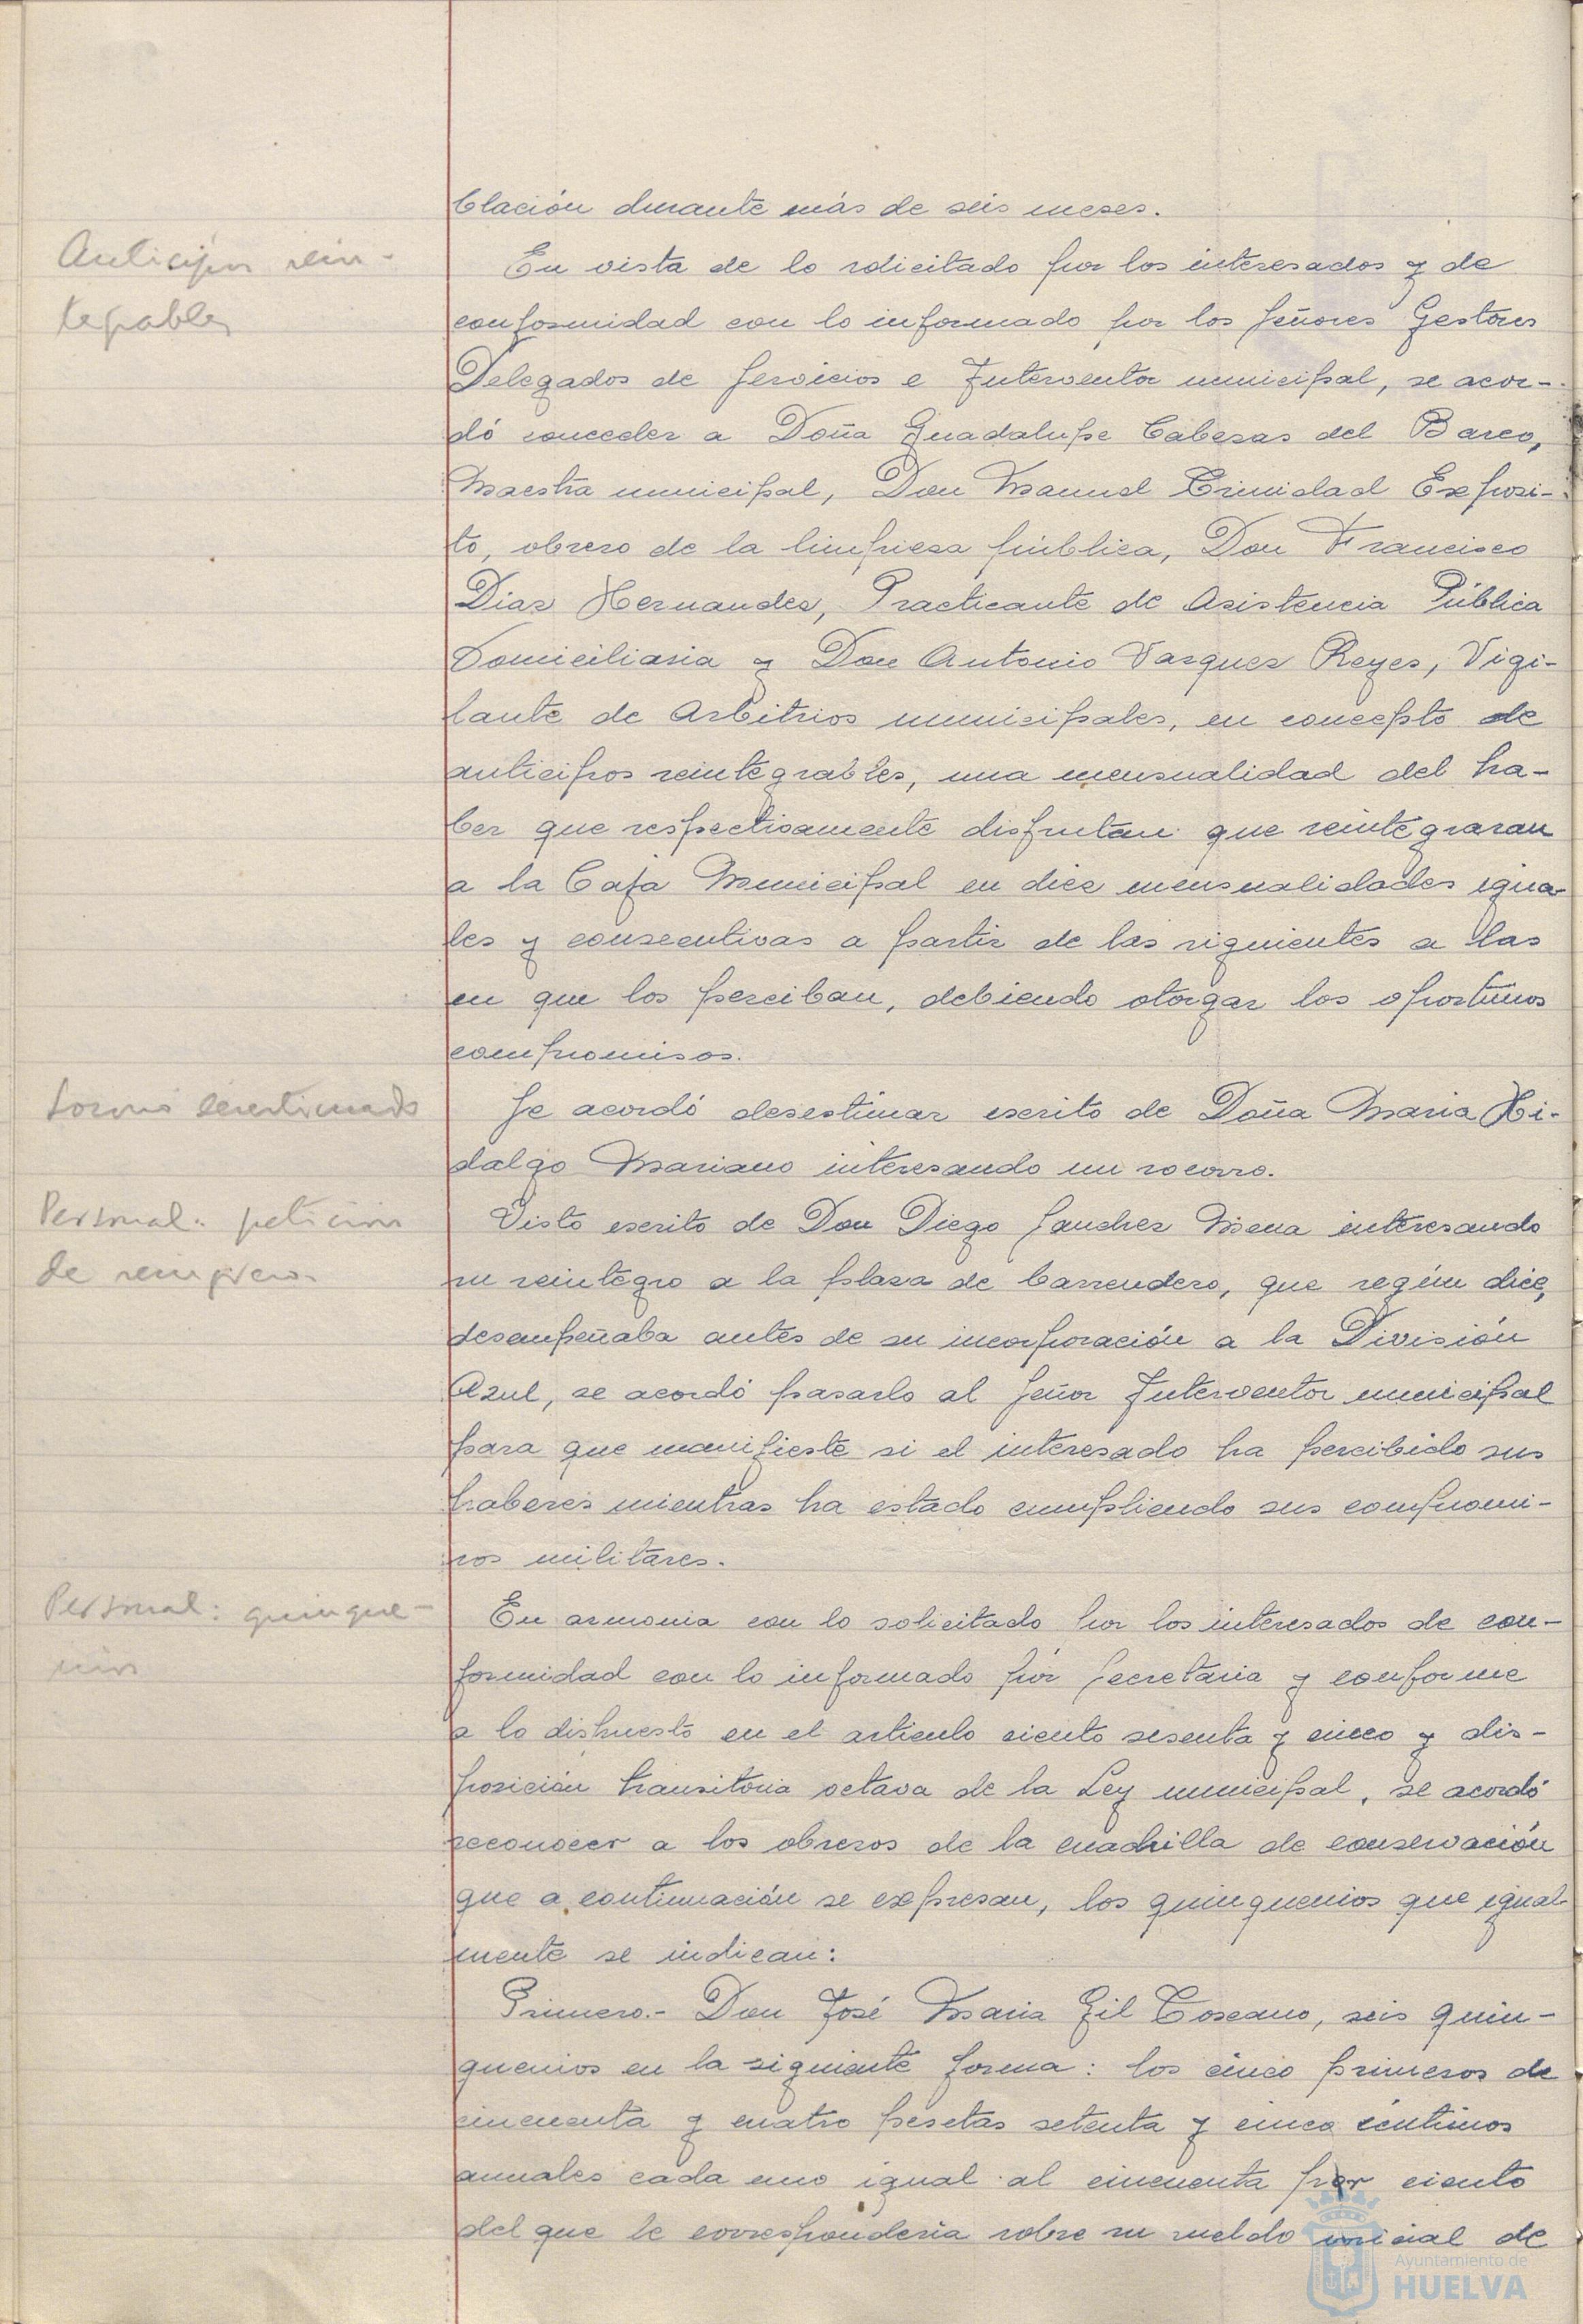 blación durante más de seis meses.
Anticipos rein-
tegrables
En vista de lo solicitado por los interesados y de
conformidad con lo informado por los Señores Gestores
Delegados de Servicios e Interventor municipal, se acor-
dó conceder a Doña Guadalupe Cabezas del Barco,
Maestra municipal, Don Manuel Trinidad Exposi-
to, obrero de la limpieza pública, Don Francisco
Diaz Hernandez, Practicante de Asistencia Pública
Domiciliaria y Don Antonio Vazquez Reyes, Vigi-
lante de Arbitrios municipales, en concepto de
anticipos reintegrables, una mensualidad del ha-
ber que respectivamente disfrutan que reintegraran
a la Caja Municipal en diez mensualidades igua-
les y consecutivas a partir de las siguientes a las
en que los perciban, debiendo otorgar los oportunos
compromisos.
Socorro desestimado
Se acordó desestimar escrito de Doña Maria Hi-
dalgo Mariano interesando un socorro.
Personal: petición
de reingreso.
Visto escrito de Don Diego Sanchez Mena interesando
su reintegro a la plaza de barrendero, que según dice,
desempeñaba antes de su incorporación a la División
Azul, se acordó pasarlo al Señor Interventor municipal
para que manifieste si el interesado ha percibido sus
haberes mientras ha estado cumpliendo sus compromi-
sos militares.
Personal: quinque-
nios
En armonia con lo solicitado por los interesados de con-
formidad con lo informado por Secretaria y conforme
a lo dispuesto en el articulo ciento sesenta y cinco y dis-
posición transitoria octava de la Ley municipal, se acordó
reconocer a los obreros de la cuadrilla de conservación
que a continuación se expresan, los quinquenios que igual-
mente se indican:
Primero.- Don José Maria Gil Toscano, seis quin-
quenios en la siguiente forma: los cinco primeros de
cincuenta y cuatro pesetas setenta y cinco centimos
anuales cada uno igual al cincuenta por ciento
del que le corresponderia sobre su sueldo inicial de
Ayuntamiento de
HUELVA